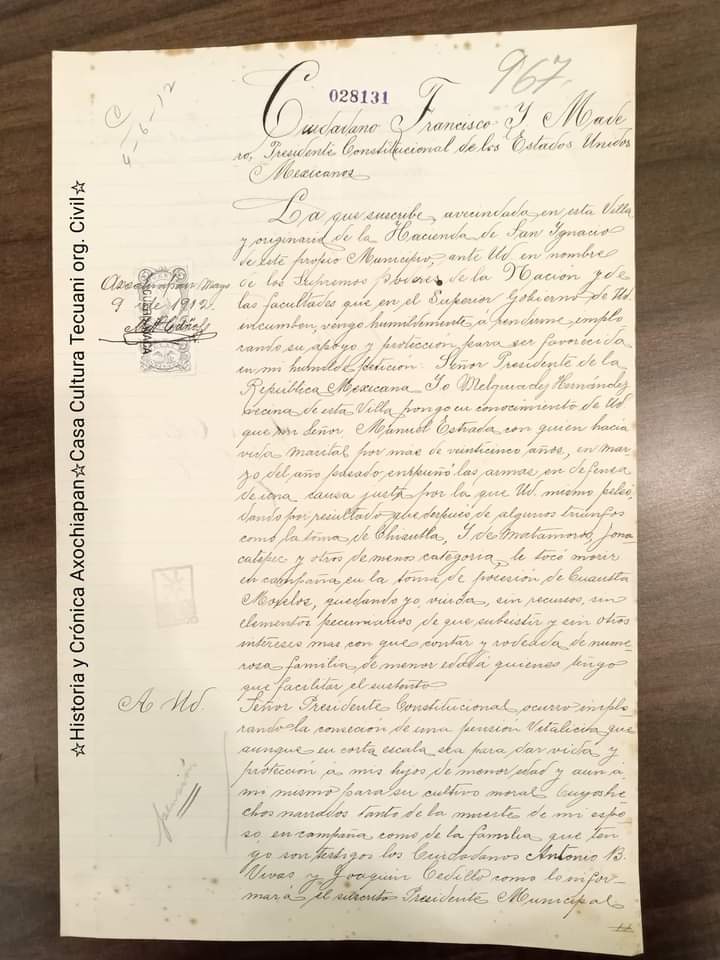 967.
C
4-6-12
028131
Ciudadano Francisco Y Made
ro, Presidente Constitucional de los Estados Unidos
Mexicanos
La que suscribe avecindada en esta Villa
y originaria de la Hacienda de San Ignacio
de este propio Municipio, ante Ud en nombre
de los Supremos poderes de la Nación y de
las facultades que en el Superior Gobierno de Ud.
incumben, vengo humildemente á rendirme, implo
rando su apoyo y protección para ser favorecida
en mi humilde petición: Señor Presidente de la
República Mexicana Yo Melquiadez Hernández
vecina de esta Villa pongo en conocimiento de Ud
que mi Señor Manuel Estrada con quien hacia
vida marital por mas de veinticinco años, en mar
zo del año pasado, empuñó las armas en defensa
de una causa justa por la que Ud mismo peleó,
dando por resultado que despues de algunos triunfos
como la toma de Chiautla, Y de Matamoros, Jona
catepec y otros de menos categoria, le tocó morir
en campaña en la toma de posesión de Cuautla
Morelos, quedando yo, viuda, sin recursos, sin
elementos pecuniarios de que subsistir y sin otros
intereses mas con que contar y rodeada de nume
rosa familia de menor edad á quienes tengo
que facilitar el sustento
A Ud.
Señor Presidente Constitucional, ocurro implo
rando la conseción de una pensión Vitalicia que
aunque en corta escala sea para dar vida y
protección á mis hijos de menor edad y aun á
mi mismo para ser cultivo moral. Cuyos he
chos narrados tanto de la muerte de mi espo
so, en campaña como de la familia que ten
go son testigos los Ciudadanos Antonio B.
Vivas y Joaquin Cedillo como lo infor-
mará el suscrito Presidente Municipal
Axochiapan Mayo
9 de 1912.
pensión
☆Historia y Crónica Axochiapan☆Casa Cultura Tecuani org. Civil☆